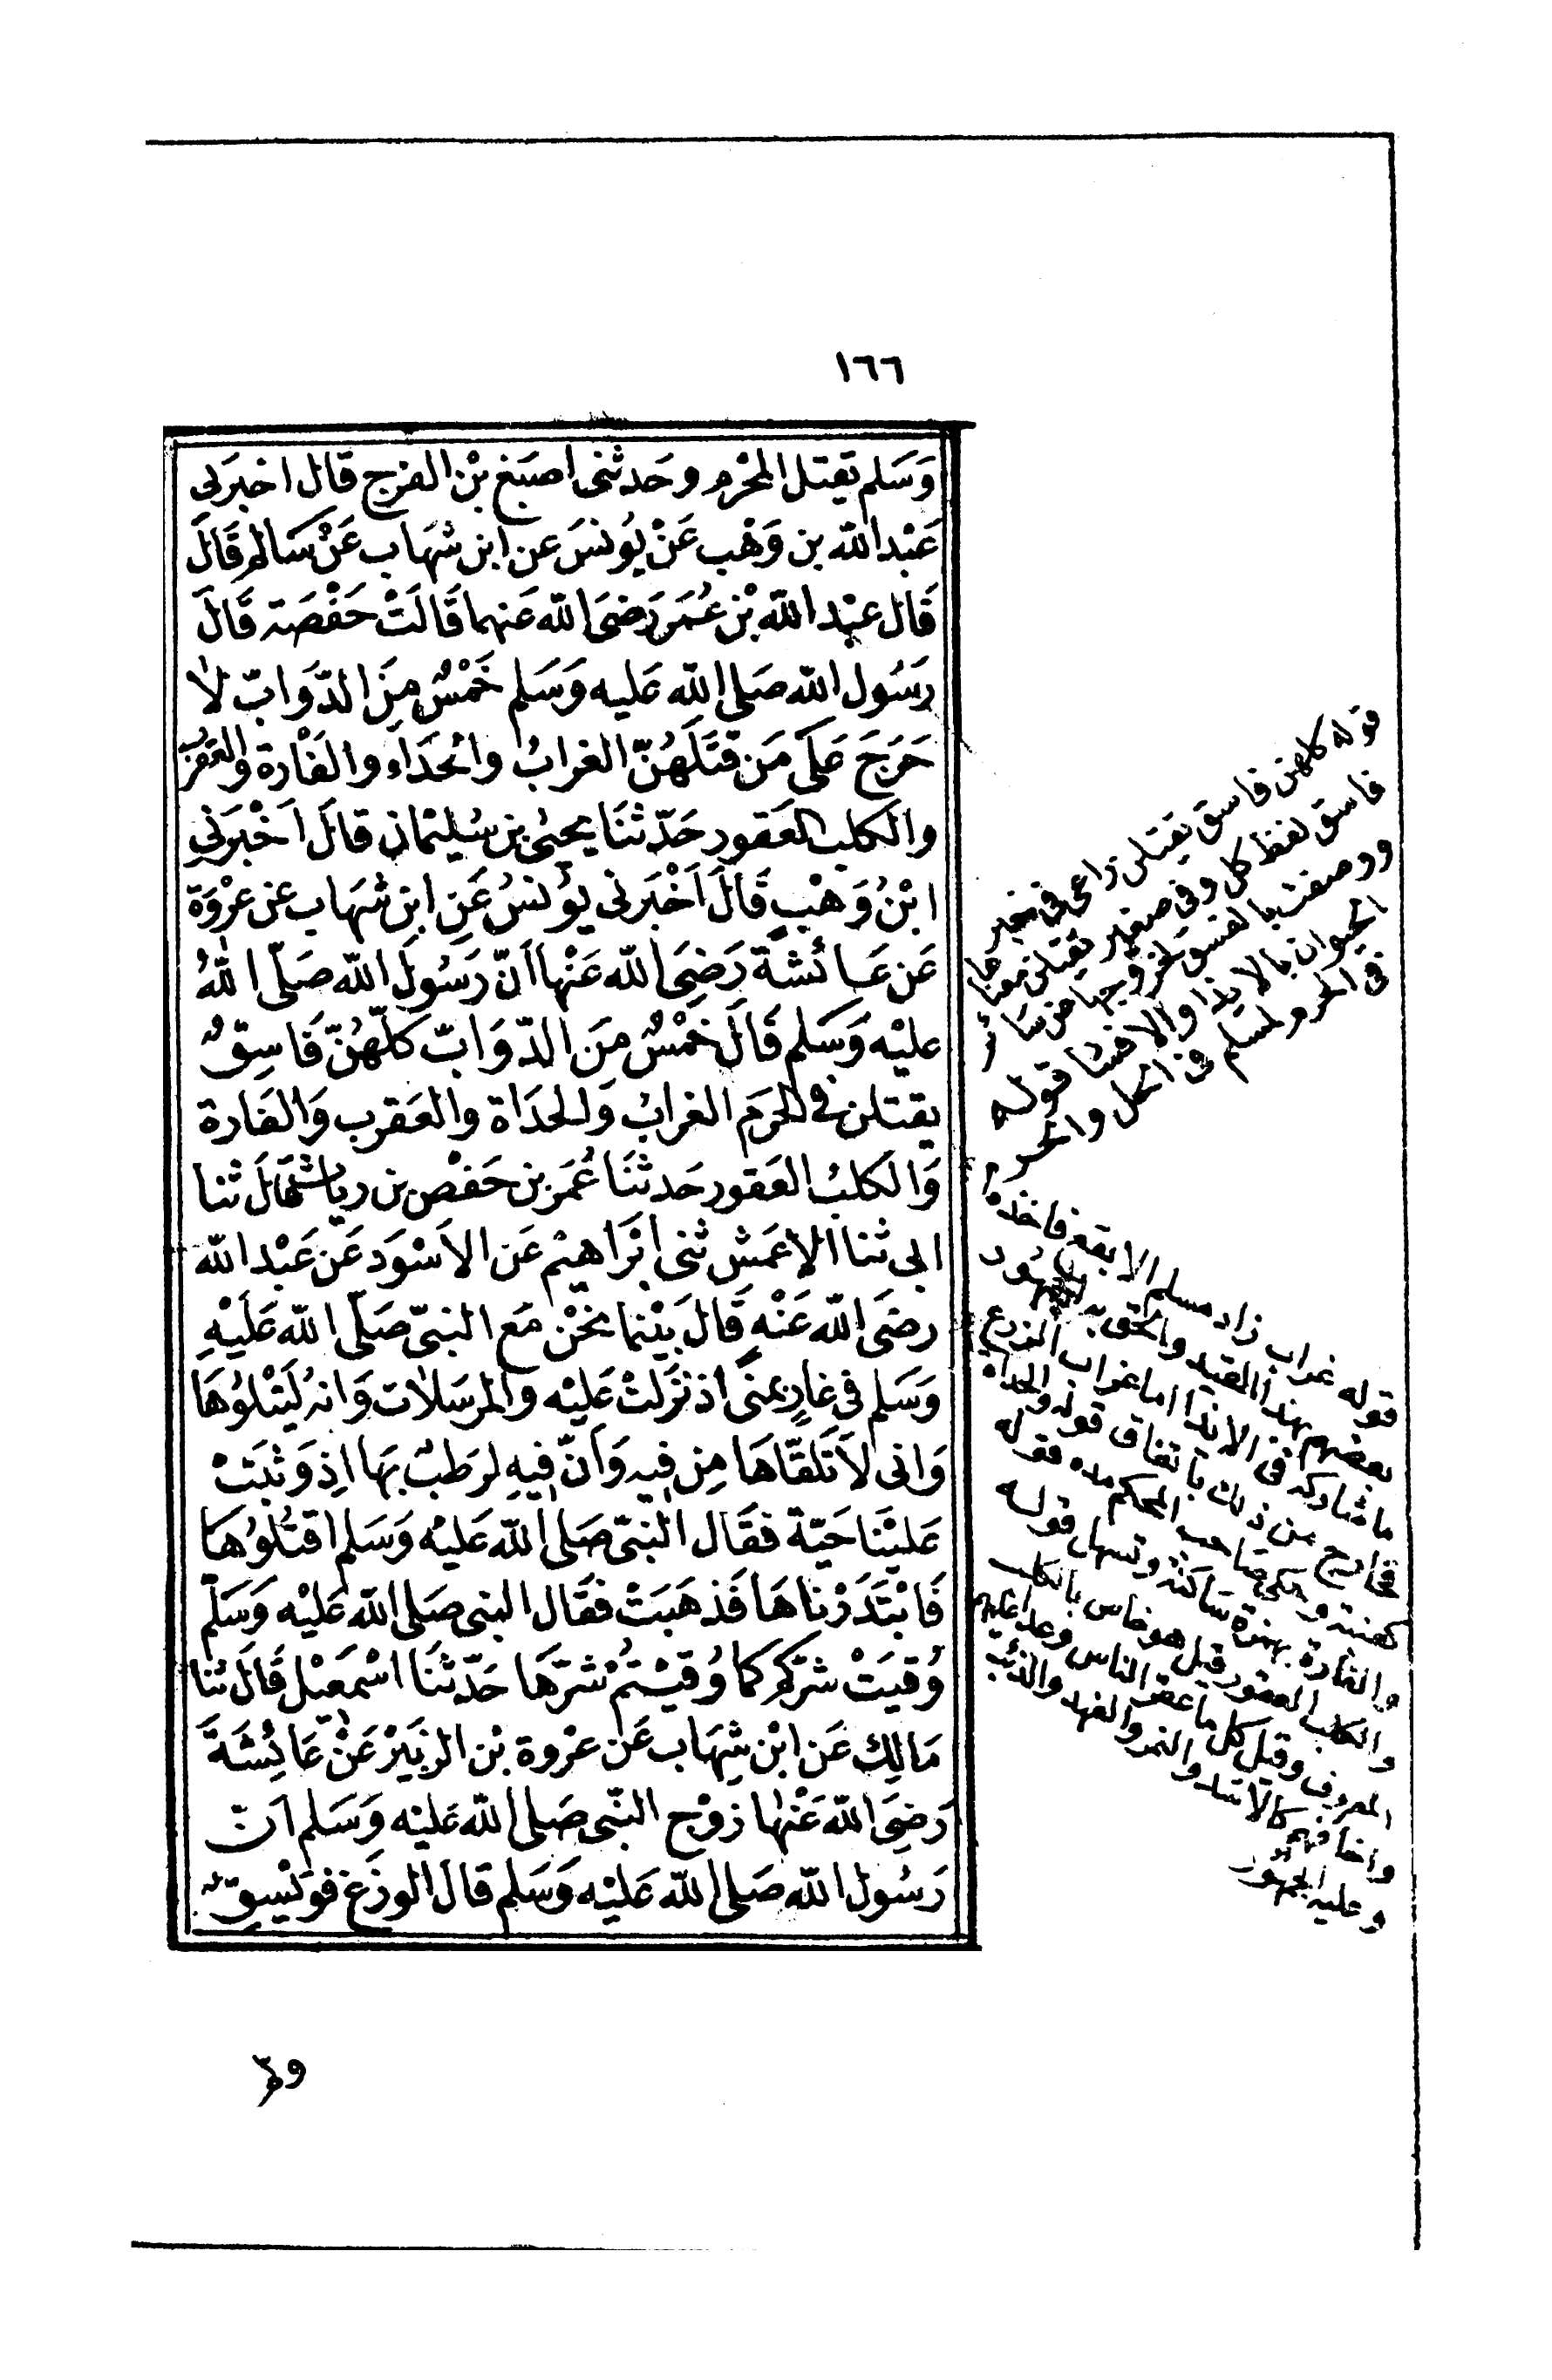 ١٦٦
وَسَلم تقتل المحْرم وحَدثنى اصبَغ بْن الفرج قال اخبرَنى
عَبْد الله بن وَهْب عَنْ يُونسَ عن ابن شهَاب عَنْ سَالم قَالَ
قَال عبْد الله بْن عُمَر رَضىَ الله عَنهما قَالَتْ حَفْصَة قَالَ
رَسُول الله صَلى الله عَليه وَسَلم خَمْسٌ مِنَ الدّوَابّ لا
حَرَجَ عَلى مَن قتَلَهُنّ الغرابُ والحَدَاء والفَارة والعَقربُ
والكلب العَقور حَدّثنَا يحيىٰ بن سُليْمان قالَ اَخْبَرَنى
ابْنُ وَهْبٍ قَالَ اَخْبَرنى يوُنسُ عَنِ ابن شهَاب عن عرْوَة
عَن عَائشَة رَضِىَ الله عَنْها اَنّ رَسُولَ الله صَلّى اللهُ
عليْه وَسَلم قَالَ خمْسٌ مِنَ الدّوَابّ كلّهُنّ فَاسِقٌ
يقتلن فى الحرَم الغرابُ وَالحدَاة والعَقرب وَالفَارة
وَالكلبُ العَقور حَدثنَا عُمَر بن حَفْص بن رياث قَالَ ثنا
ابى ثنا الاعمَش ثنى ابْرَاهيْم عَن الاَسْوَد عَن عَبْد الله
رضَى الله عَنْه قَالَ بَيْنما نحْن مَع النبىّ صَلّى الله عَلَيْهِ
وَسَلم فى غارٍ بمنىً اذ نزَلتْ عَليْه والمرسَلات وَانهُ لَيَتْلُوُهَا
وَانى لاَتَلَقّاهَا مِن فِيه وَاَنّ فِيهِ لرَطبٌ بهَا اذِ وَثبَتْ
عَليْنَا حَيّة فقَال النبىّ صَلى الله عَليْه وَسَلم اقتُلُوُهَا
فَابْتَدَرْناهَا فَذهَبَتْ فقَال النبى صَلى الله عَليْه وَسَلّم
وُقيَتْ شرّكم كما وُقيْتمُ شرّهَا حَدّثنَا اسْمَعيْل قَالَ ثنا
مَالِك عَن ابْن شِهَاب عَن عرْوة بْن الزبَيْر عَنْ عَائِشَةَ
رَضِىَ الله عَنْها زوْج النّبى صَلى الله عَليْه وَسَلم اَنّ
رَسُول الله صَلى الله عَليْه وَسَلم قالَ الوزَغ فوَيْسِق
قوله كلهن فاسق يقتلن راعى فى ضمير
فاسق لفظ كل وفى ضمير يقتلن معناها
ووصفت بالفسق لخروجها من سائر
الحيوان بالايذا والافسا قوله
فى الحرم لمسلم فى الحل والحرم
قوله غراب زاد مسلم الابقع فاخذ
بعضهم بهذا القيد والحق به الجمهور
ما شاركه فى الايذا اما غراب الزرع
فخارج من ذلك باتفاق قوله والحداة
كعنبة وحكى صاحب المحكم مده قوله
والفارة بهمزة ساكنة وتسهل قوله
والكلب العقور قيل هو خاص بالكلب
المعروف وقيل كل ما عقر الناس وعدا عليهم
واخافهم كالاسد والنمر والفهد والذئب
وعليه الجمهور